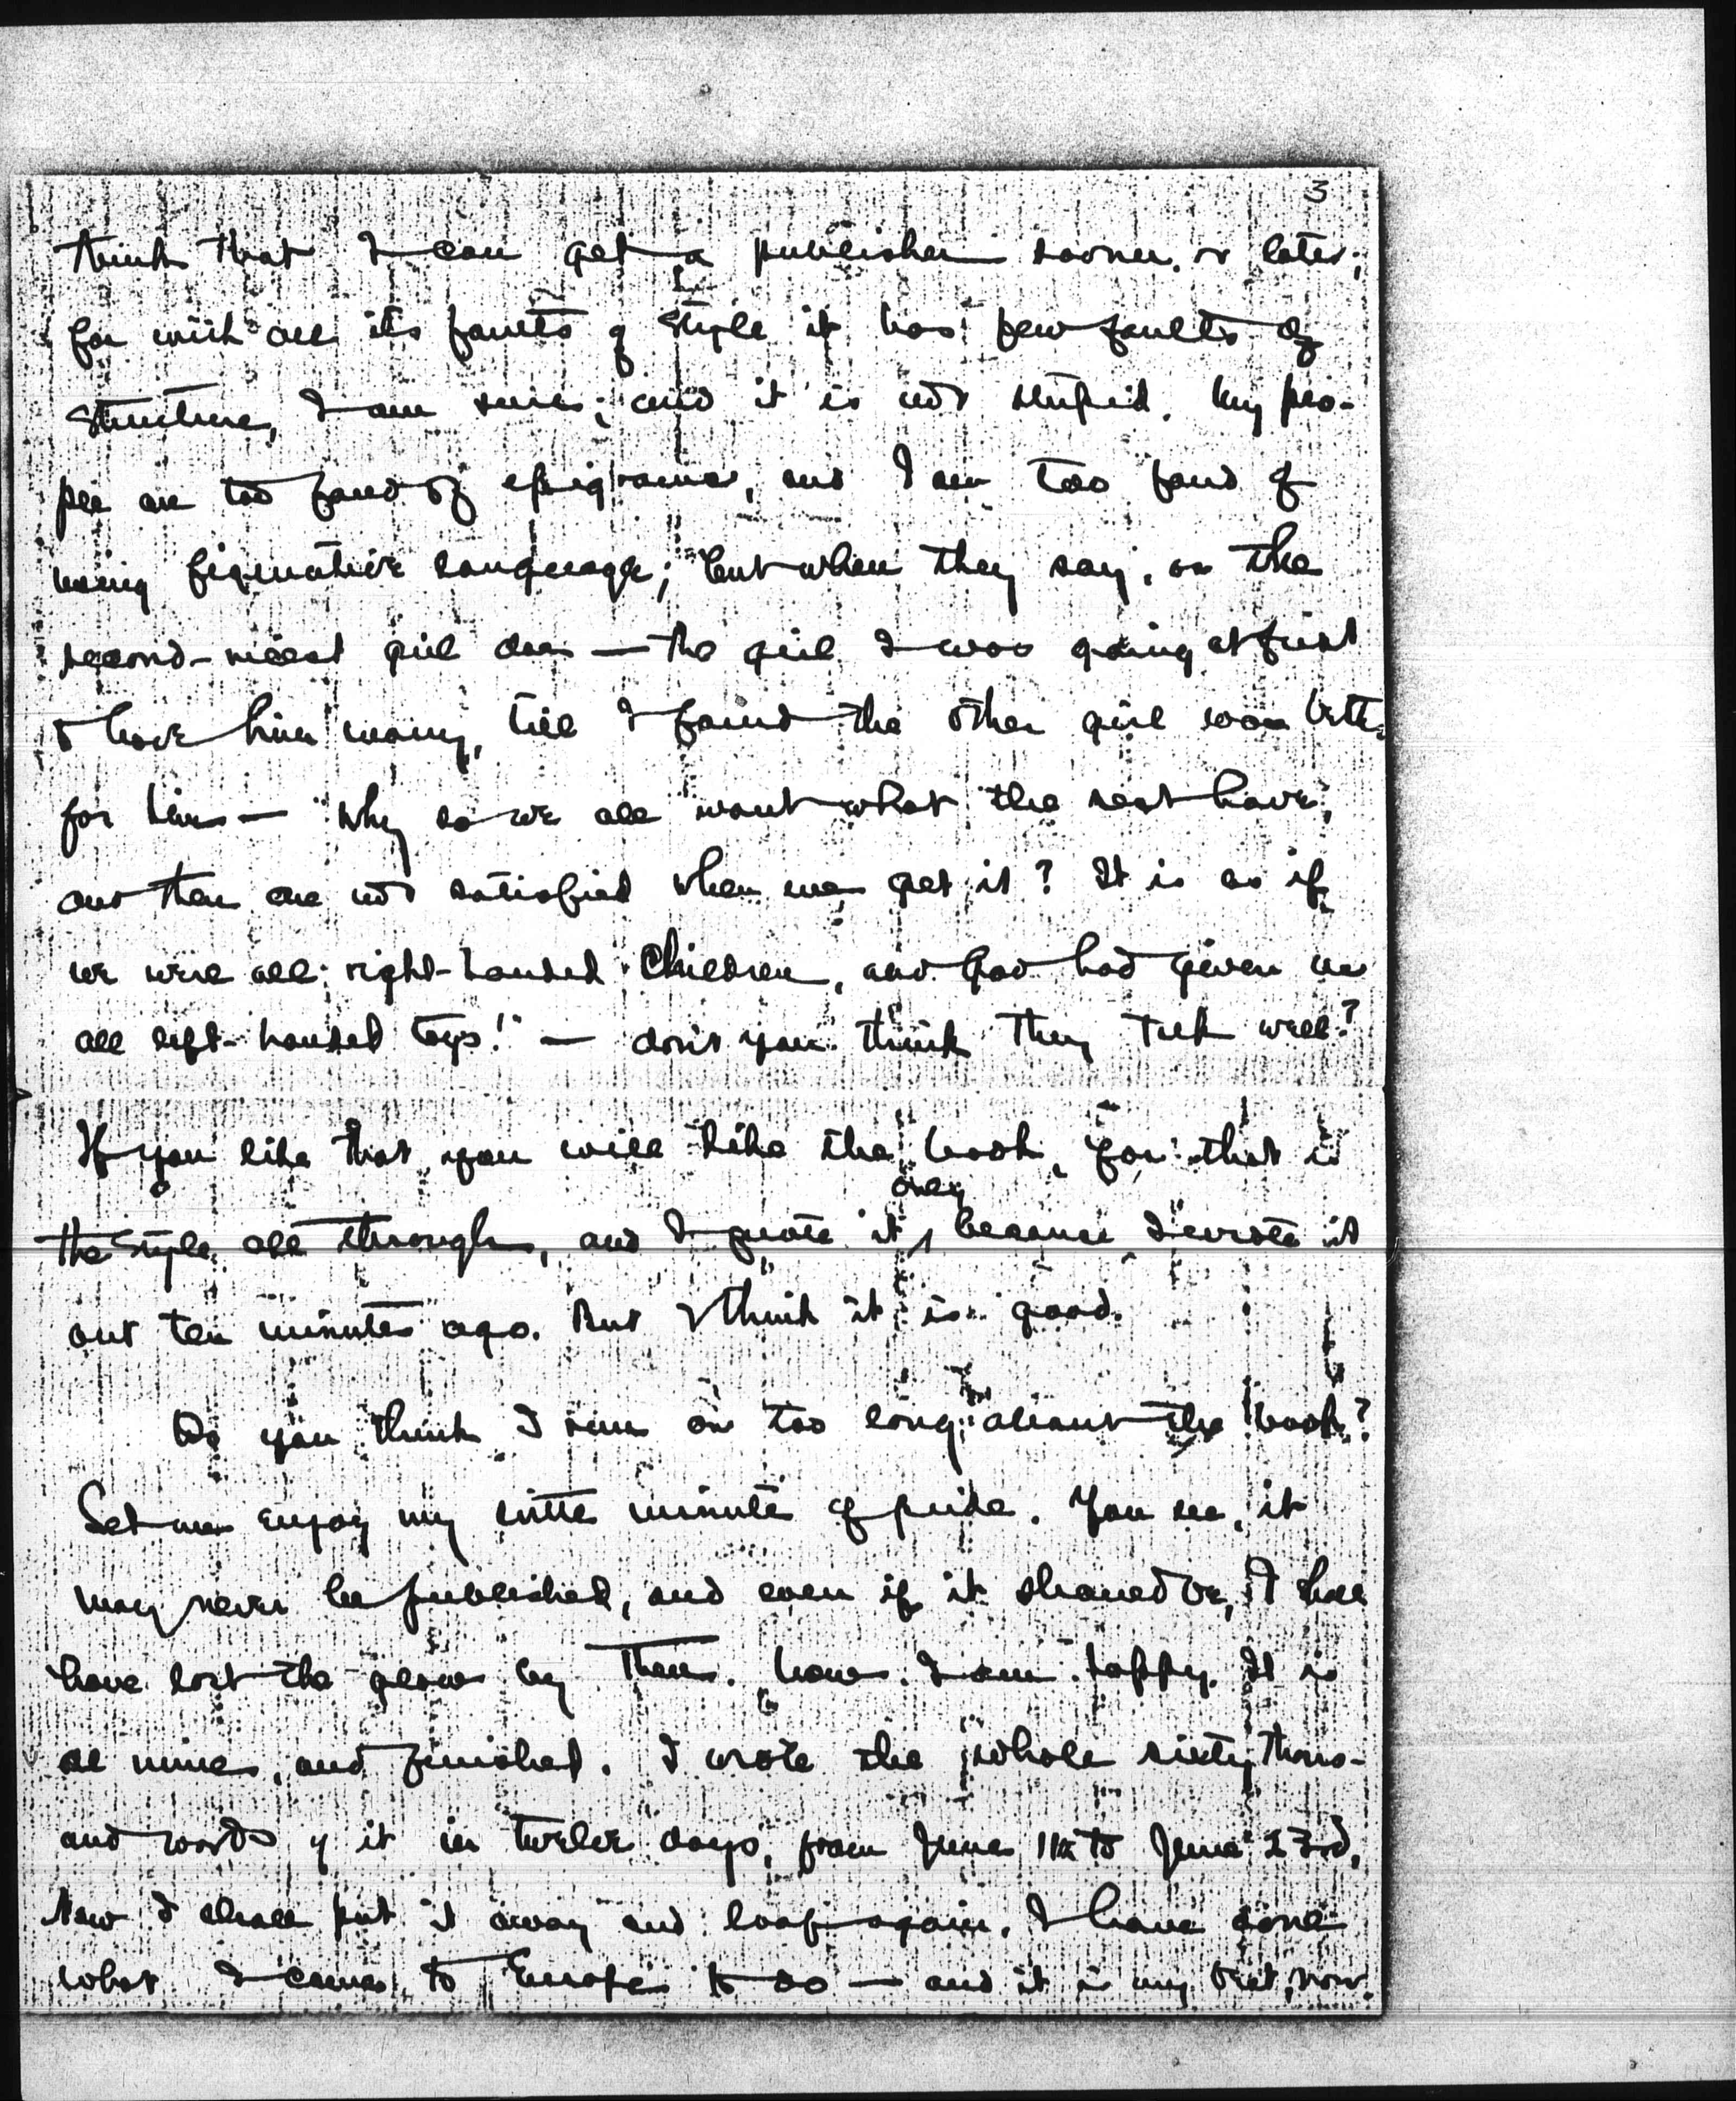 3
think that I can get a publisher sooner or later;
for with all its faults of style it has few faults of
structure, I am sure; and it is not stupid. My peo-
ple are too fond of epigrams, and I am too fond of
using figurative language; but when they say, as the
second-nicest girl does — the girl I was going at first
to have him marry, till I found the other girl was better
for him — "Why do we all want what the rest have,
and then are not satisfied when we get it? It is as if
we were all right-handed children, and God had given us
all left-handed toys!" — don't you think they talk well?
If you like that you will like the book, for that is
the style all through, and I quote it only because I wrote it
out ten minutes ago. But I think it is good.
Do you think I run on too long about the book?
Let me enjoy my little minute of pride. You see, it
may never be published, and even if it should be, I shall
have lost the glow by then. Now I am happy. It is
all mine, and finished. I wrote the whole sixty thous-
and words of it in twelve days, from June 11th to June 23rd,
Now I shall put it away and loaf again. I have done
what I came to Europe to do — and it is my best, now.